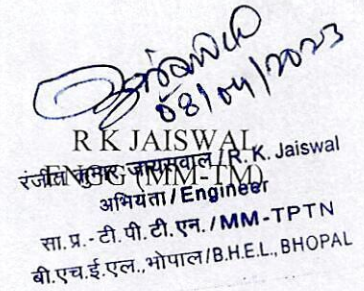 08/04/2023
R K JAISWAL
ENGG (MM-TM)
रंजीत कुमार जायसवाल / R. K. Jaiswal
अभियंता / Engineer
सा.प्र.-टी.पी.टी.एन. / MM-TPTN
बी.एच.ई.एल.,भोपाल/B.H.E.L., BHOPAL